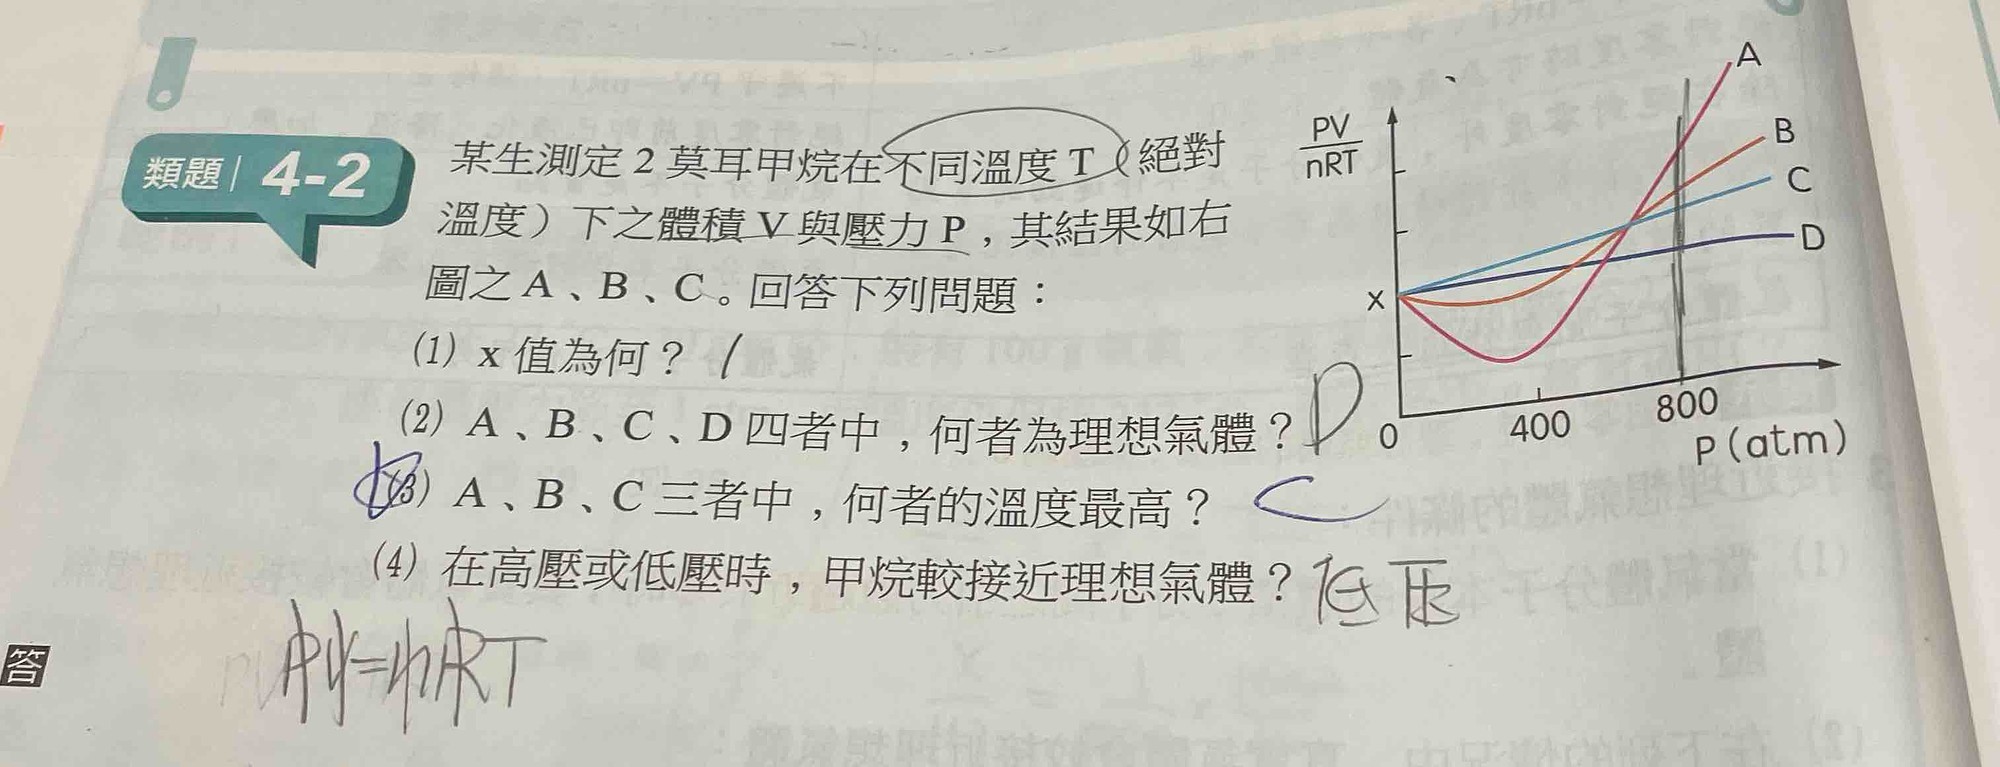 類題 4-2
某生測定2莫耳甲烷在不同溫度T(絕對
溫度)下之體積V與壓力P,其結果如右
圖之A、B、C。回答下列問題:
(1) x 值為何? 1
(2) A、B、C、D四者中,何者為理想氣體? D
(3) A、B、C三者中,何者的溫度最高? C
(4) 在高壓或低壓時,甲烷較接近理想氣體? 低壓
PV=nRT
答
PV
nRT
A
B
C
D
x
0
400
800
P(atm)